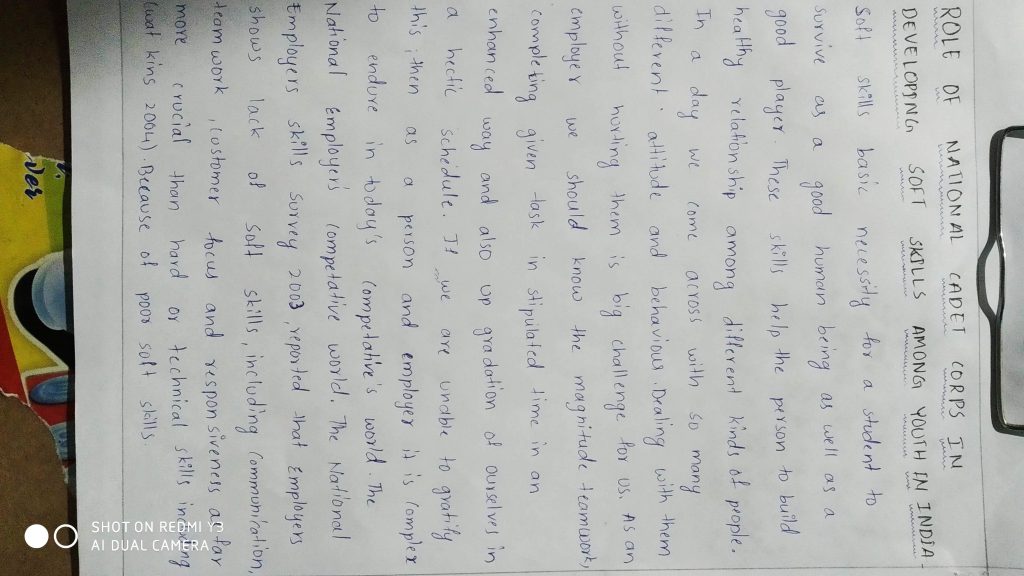 ROLE OF NATIONAL CADET CORPS IN
DEVELOPING SOFT SKILLS AMONG YOUTH IN INDIA.
Soft skills basic necessitly for a student to
survive as a good human being as well as a
good player. These skills help the person to build
healthy relationship among different kinds of people.
In a day we come across with so many
different attitude and behavious. Dealing with them
without hurting them is big challenge for us. As an
employer we should know the magnitude teamwork,
completing given task in stipulated time in an
enhanced way and also up gradation of ourselves in
a hectic schedule. If we are unable to gratify
this, then as a person and employer it is complex
to endure in today's competative's world. The
National Employer's competative world. The National
Employers skills Survey 2003, reported that Employers
shows lack of soft skills, including communication,
teamwork, customer focus and responsiveness as far
more crucial than hard or technical skills
kins 2004). Because of poor soft skills.
ver
SHOT ON REDMI Y3
AI DUAL CAMERA